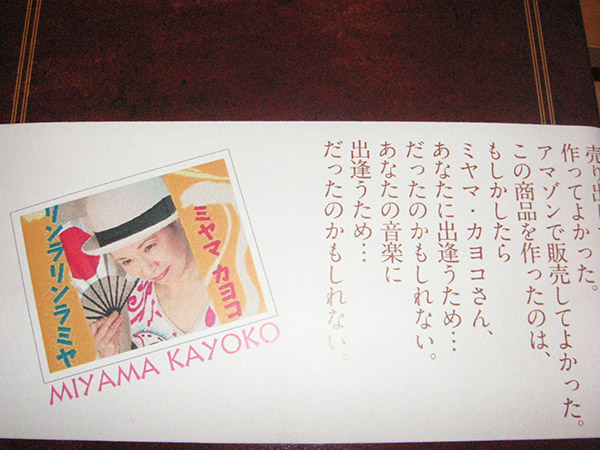 売り出して
作ってよかった。
アマゾンで販売してよかった。
この商品を作ったのは、
もしかしたら
ミヤマ・カヨコさん、
あなたに出逢うため…
だったのかもしれない。
あなたの音楽に
出逢うため…
だったのかもしれない。
ミヤマ カヨコ
リンラリンラミヤ
MIYAMA KAYOKO